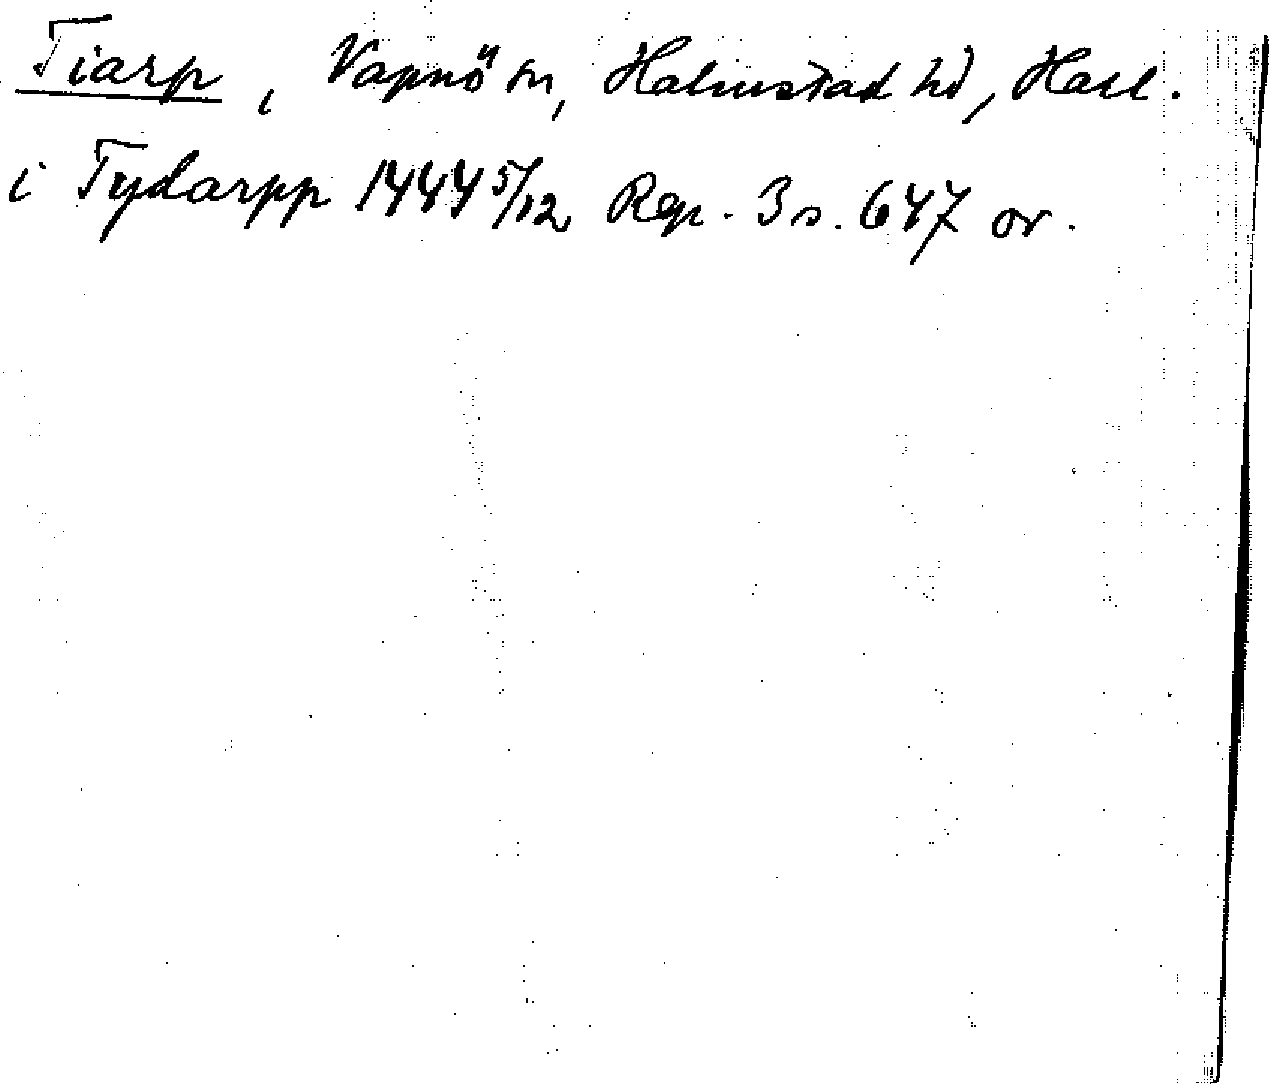 Tiarp, Vapnö sn, Halmstad hd, Hall.
i Tydarpp 1444 5/12 Rep. 3 s. 647 or.